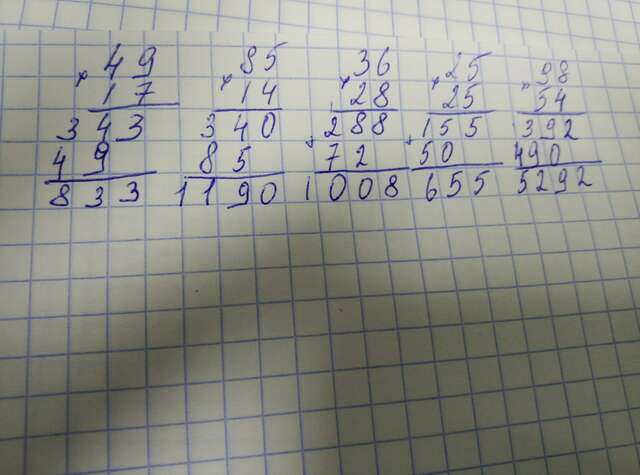 49 85 36 25 98
× 17 × 14 × 28 × 25 × 54
343 340 288 155 392
49 85 + 72 + 50 490
833 1190 1008 655 5292